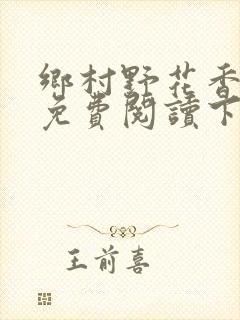 鄉村野花香
免費閱讀下
王前喜